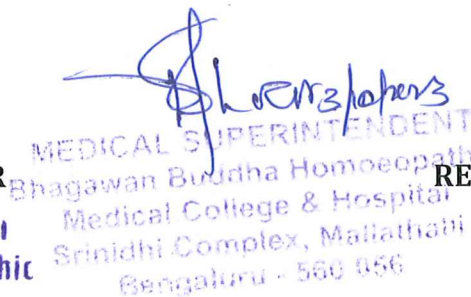 MEDICAL SUPERINTENDENT
Bhagawan Buddha Homoeopath
R
RE
Medical College & Hospital
Srinidhi Complex, Mallathahi
hic
Bengaluru - 560 056